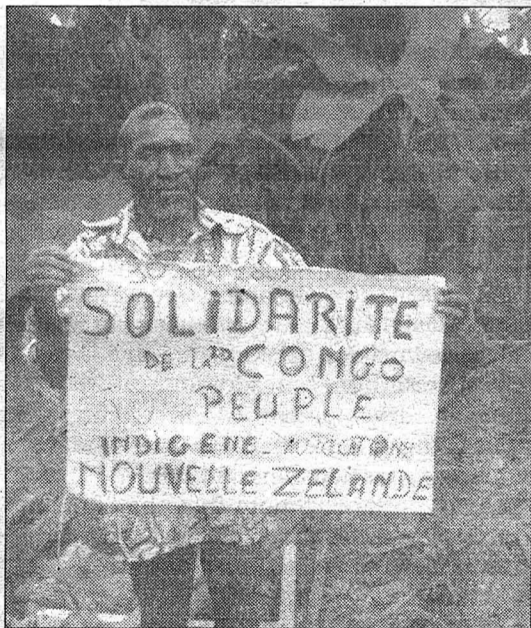 SOLiDARITE
DE LA RD CONGO
AU PEUPLE
INDIGENE - AUTOCHTONE
NOUVELLE ZELANDE